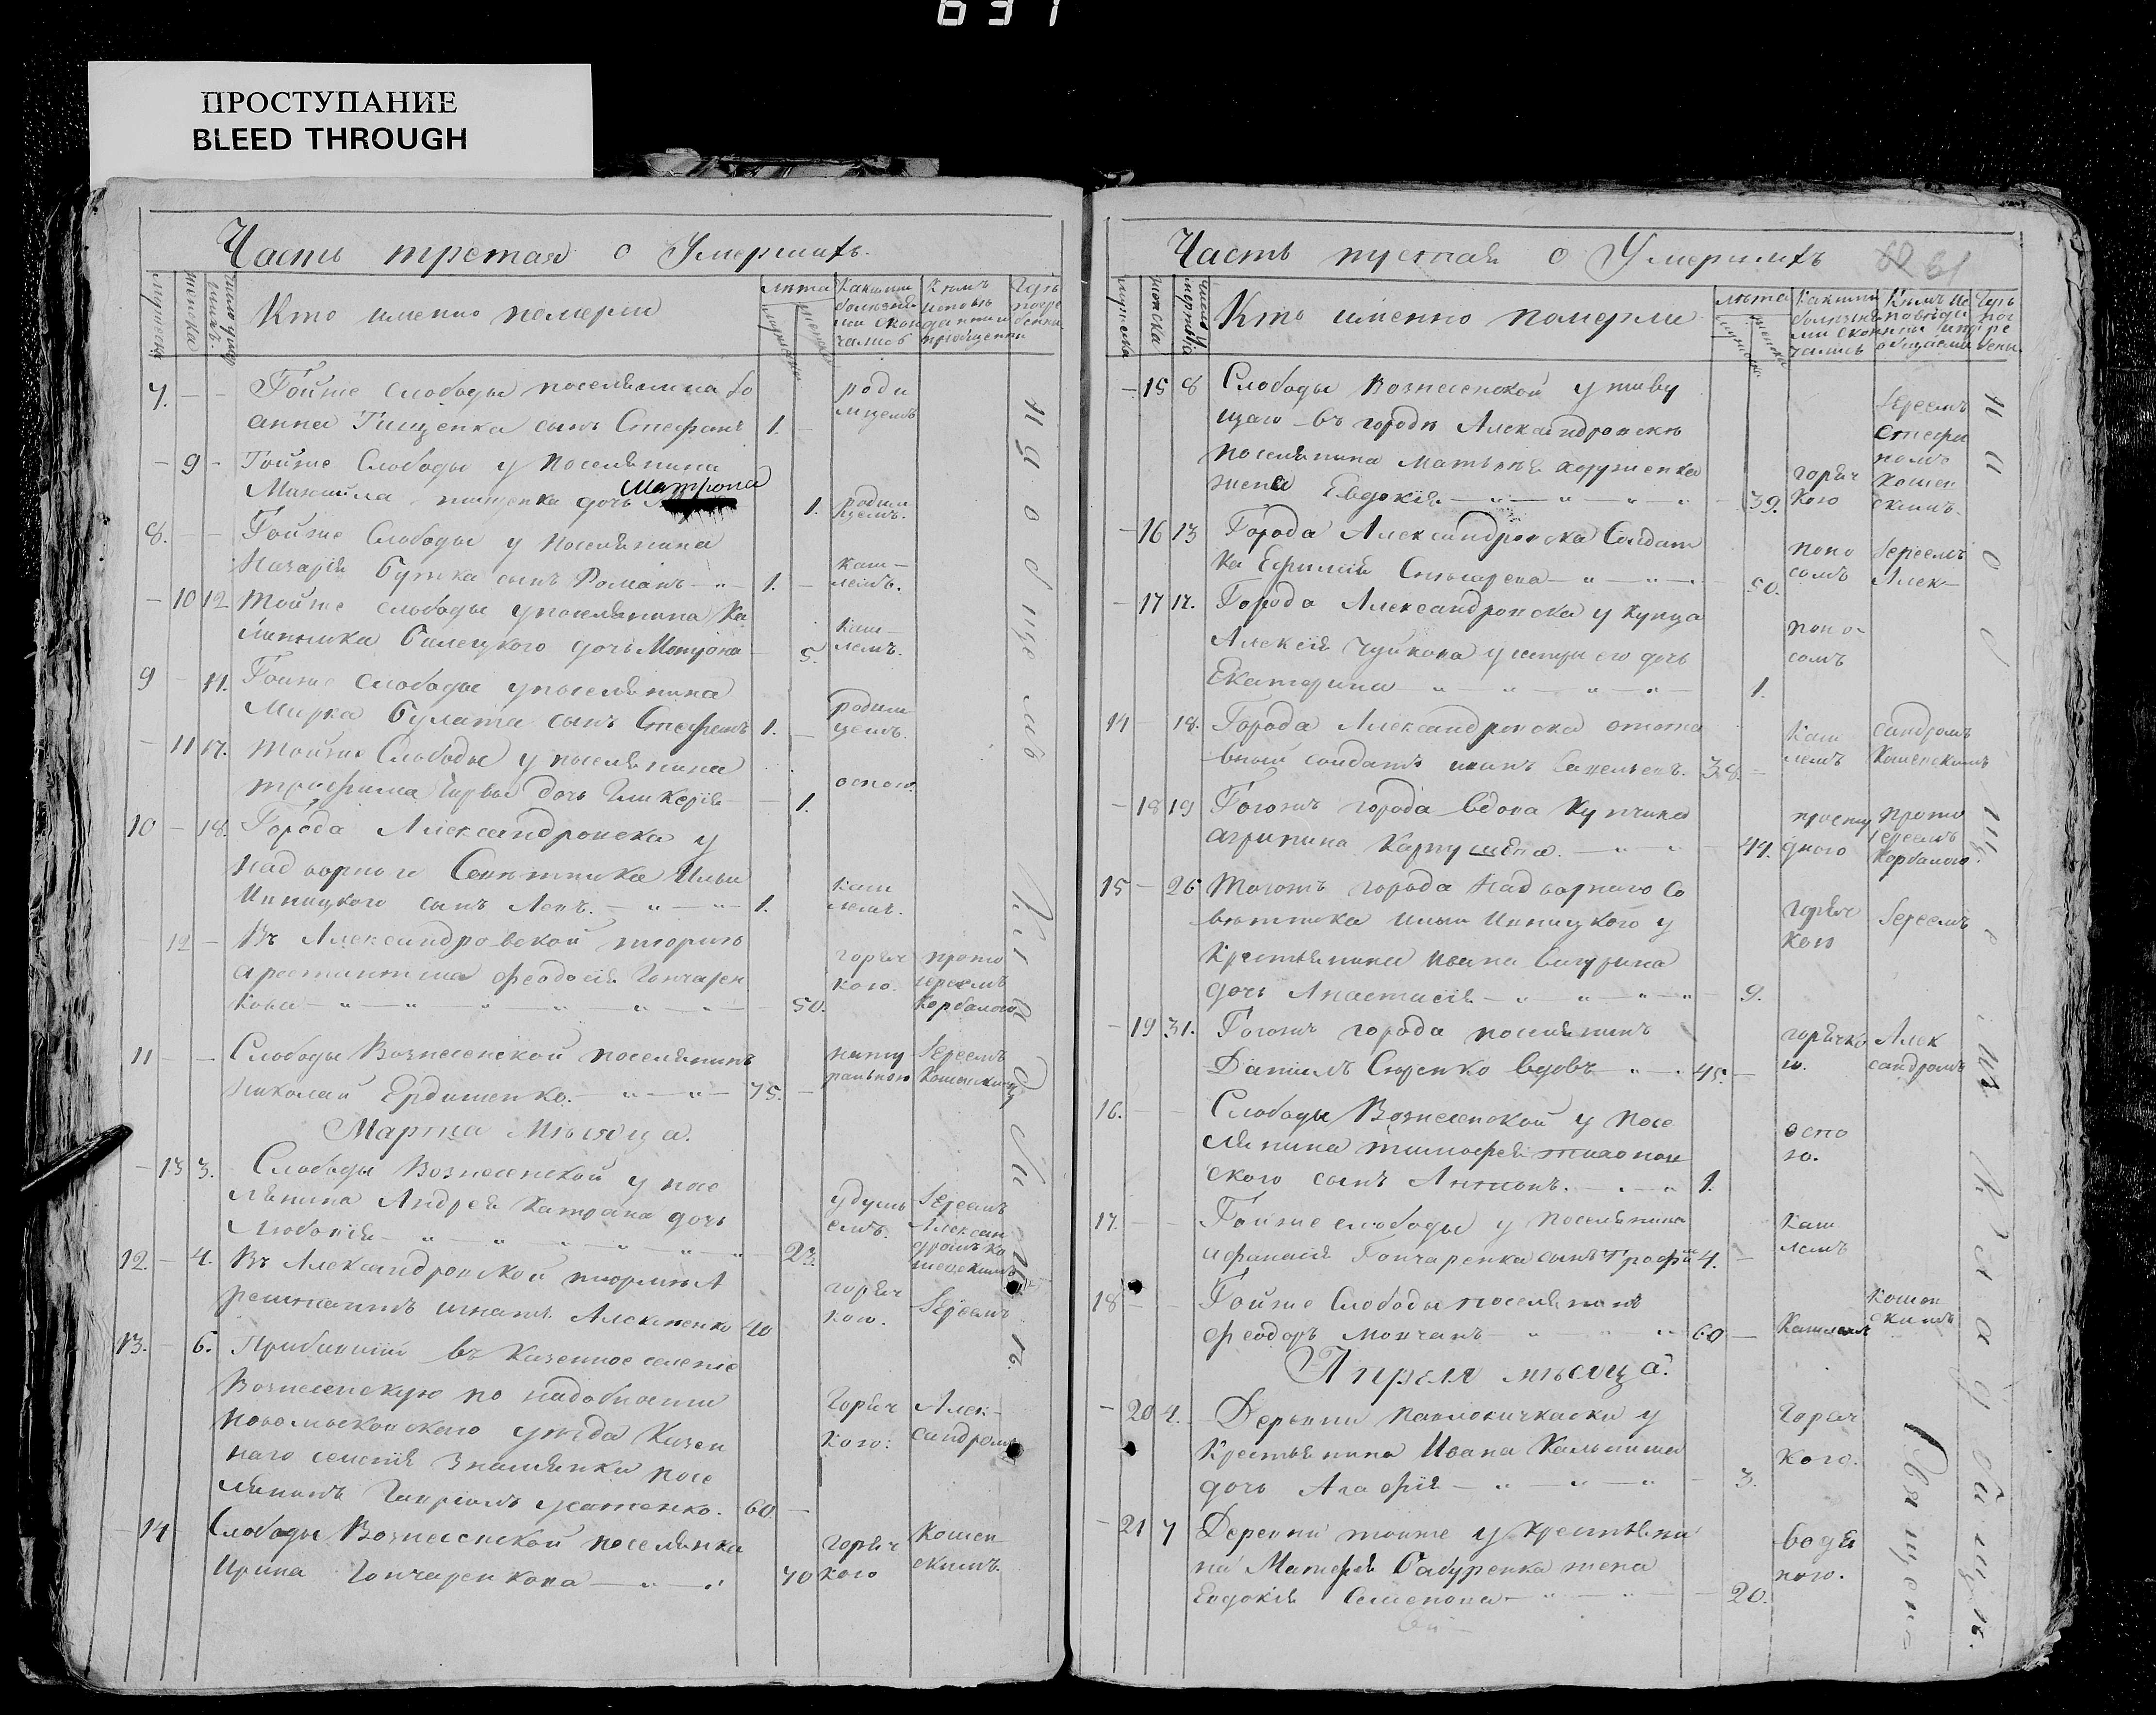 631
ПРОСТУПАНИЕ
BLEED THROUGH
Часть третая о Умершихъ.
мужеска
женска
Кто именно померли
лѣта
Какими
болѣзня
ми скон
чались
Кѣмъ
исповѣ
даны и
приобщены
Гдѣ
погре
бены
7. Тойже слободы поселянина Іо
анна Тищенка сынъ Стефанъ 1.
роди
мцемъ
9 Тойже Слободы у поселянина
Михаила пищенка дочь Матрона 1.
родим
цемъ.
8. Тойже Слободы у поселянина
Назарія Бутка сынъ Романъ 1.
каш-
лемъ.
10 12 Тойже слободы у поселянина Ка
линника Билецкого дочь Мотрона 5.
каш-
лемъ.
9 11. Тойже слободы у поселянина
Мирка Булата сынъ Стефанъ 1.
родим
цемъ.
11 17. Тойже Слободы у поселянина
Трофима дочь Гликерія 1.
оспою.
10 18. Города Александровска у
надворного Совѣтника Ильи
Иницкого сынъ Левъ. 1.
каш
лемъ.
12 Въ Александровской тюрмѣ
арестантша Феодосія Гончарен
кова 50.
горяч
кою.
прото
іереемъ
Корбаного
11 Слободы Вознесенской поселянинъ
Николай Ердименко. 75.
нату
ральною
Іереемъ
Кошевскимъ
Марта Мѣсяца.
13 3. Слободы Вознесенской у посе
лянина Андрея Катрана дочь
Любовія 23.
удуш
емъ.
Іереемъ
Алексан
дромъ Ко
шевскимъ
12. 4. Въ Александровской тюрмѣ А
рештантъ Игнатъ Алексеенко 40
горяч
кою.
Іереемъ
13. 6. Прибывшій въ Казенное селеніе
Вознесенскую по надобности
Новомосковского уѣзда Казен
наго селенія Знаменки посе
лянинъ Гавріилъ 60.
Горяч
кою.
Алек-
сандромъ
14 Слободы Вознесенской поселянка
Ирина Гончаренкова 70
горяч
кою
Кошев
скимъ.
На общемъ кладбищѣ.
Часть третая о Умершихъ
60 61
мужеска
женска
Кто именно померли
лѣта
Какими
болѣзня
ми скон
чались
15 8 Слободы Вознесенской у живу
щаго въ городѣ Александровскѣ
поселянина Матвѣя Хорженка
жена Евдокія 39.
горяч
кою
Іереемъ
Стефа
номъ
Кошев
скимъ.
16 13 Города Александровска Солдат
ка Ефимія Слюсарева 50.
поно
сомъ
Іереемъ
Алек-
17 17. Города Александровска у купца
Алексія Чуйкова у сестры его дочь
Екатерина 1.
поно-
сомъ
14 18. Города Александровска отста
вной солдатъ 38.
каш
лемъ
сандромъ
Кошевскимъ
18 19 Тогожъ города вдова купчиха
Агрипина 49.
простуд
ною
прото
іереемъ
Корбаного
15 26 Тогожъ города Надворного Со
вѣтника Ильи Иницкого у
крестьянина Ивана
дочь Анастасія 9.
горяч
кою
Іереемъ
19 31. Тогожъ города поселянинъ
Даніилъ Сюренко вдовъ 45.
горячко
ю.
Алек
сандромъ
16. Слободы Вознесенской у посе
лянина Тимофея Тихонов
ского сынъ Антонъ. 1.
оспо
ю.
17. Тойже слободы у поселянина
Афанасія Гончаренка сынъ Трофимъ 4.
каш
лемъ
18 Тойже Слободы поселянинъ
Феодоръ Мовчанъ 60
Кашлемъ
Кошев
скимъ
Апреля мѣсяца.
20 4. Деревни Павлокичкаски у
крестьянина Ивана
дочь Агафія 3.
Горяч
кою.
21 7 Деревни тойже у крестьяни
на Матфея Бабуренка жена
Евдокія Семенова 20.
водя
ною.
На общемъ кладбищѣ.
Священ